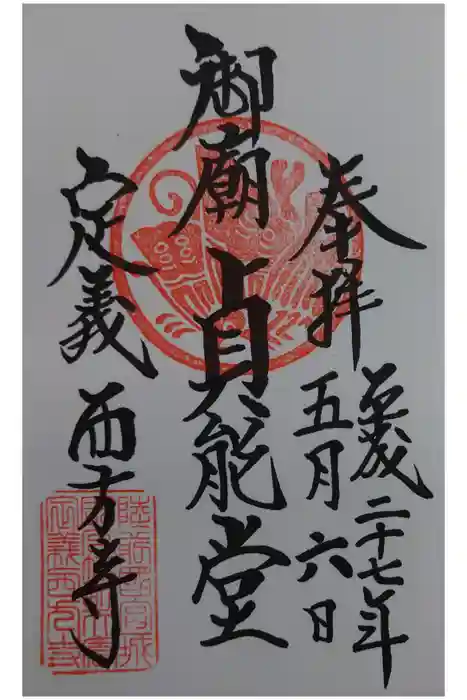 奉拝
平成二十七年
五月六日
御廟
貞能堂
定義
西方寺